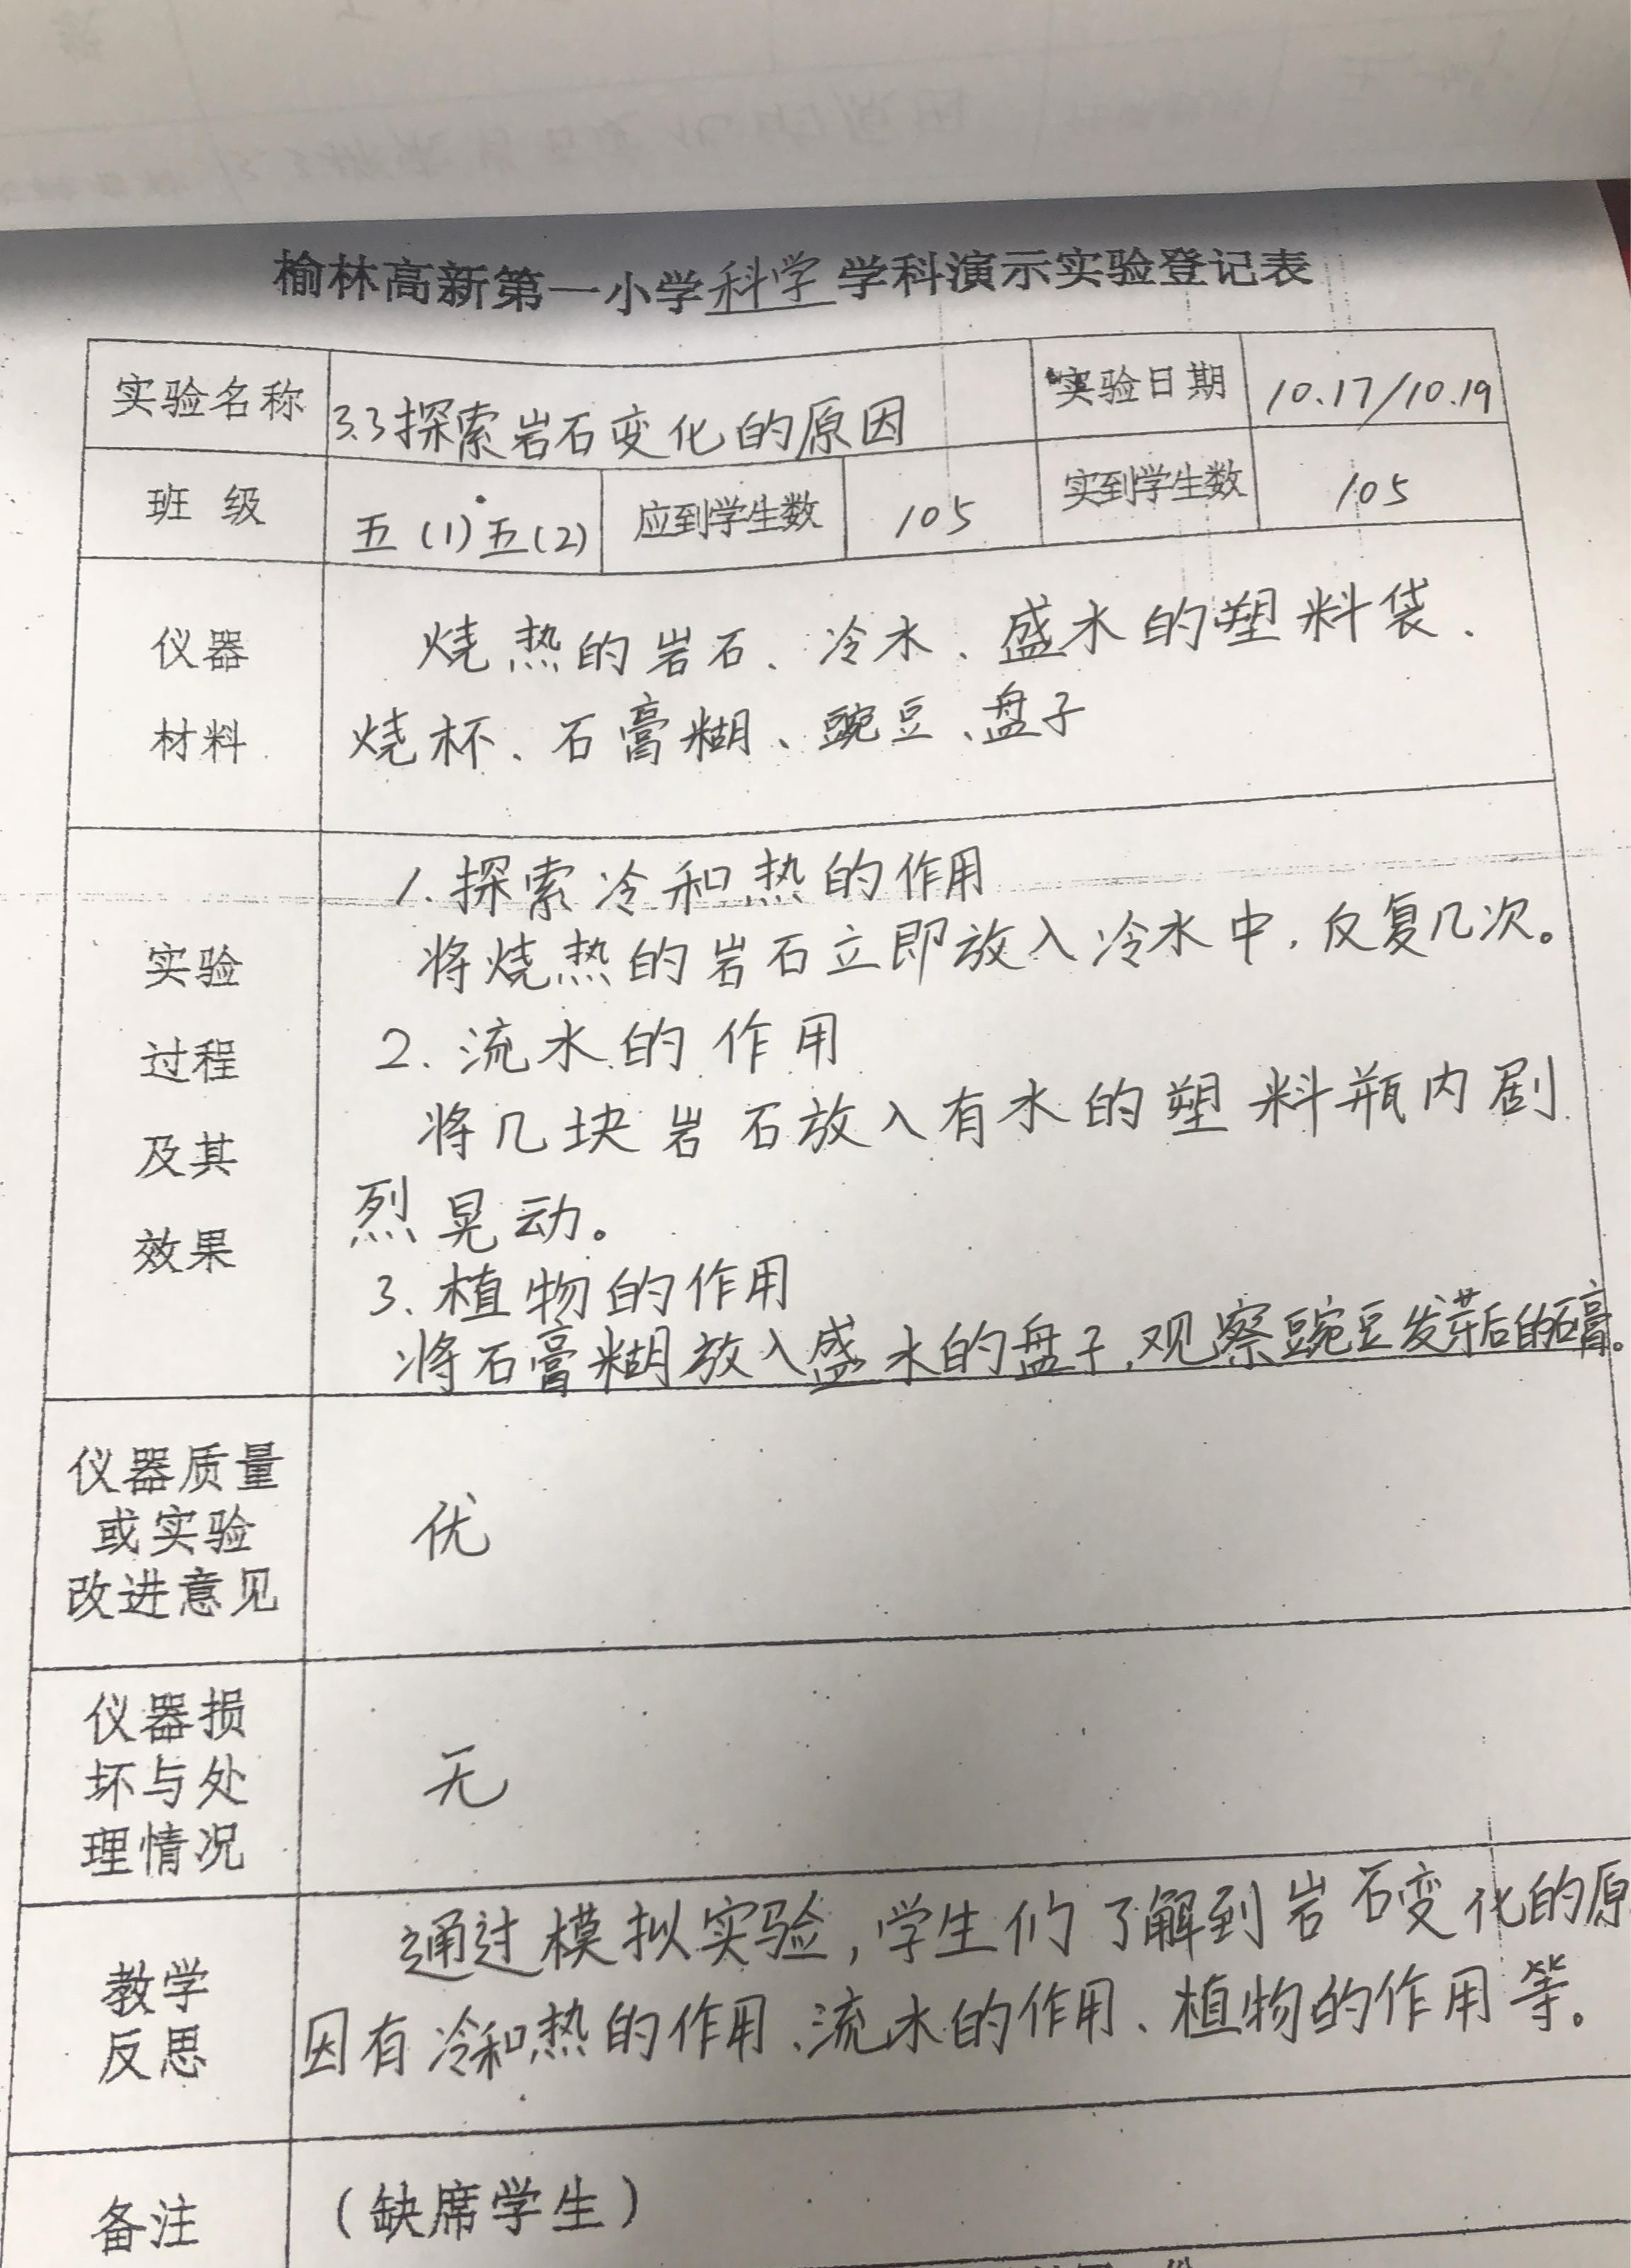 榆林高新第一小学科学学科演示实验登记表
实验名称 3.3探索岩石变化的原因 实验日期 10.17/10.19
班级 五(1)五(2) 应到学生数 105 实到学生数 105
仪器
材料
烧热的岩石、冷水、盛水的塑料袋、
烧杯、石膏糊、豌豆、盘子
实验
过程
及其
效果
1.探索冷和热的作用
将烧热的岩石立即放入冷水中,反复几次。
2.流水的作用
将几块岩石放入有水的塑料瓶内剧
烈晃动。
3、植物的作用
将石膏糊放入盛水的盘子,观察豌豆发芽后的石膏。
仪器质量
或实验
改进意见
优
仪器损
坏与处
理情况
无
教学
反思
通过模拟实验,学生们了解到岩石变化的原
因有冷和热的作用、流水的作用、植物的作用等。
备注 (缺席学生)